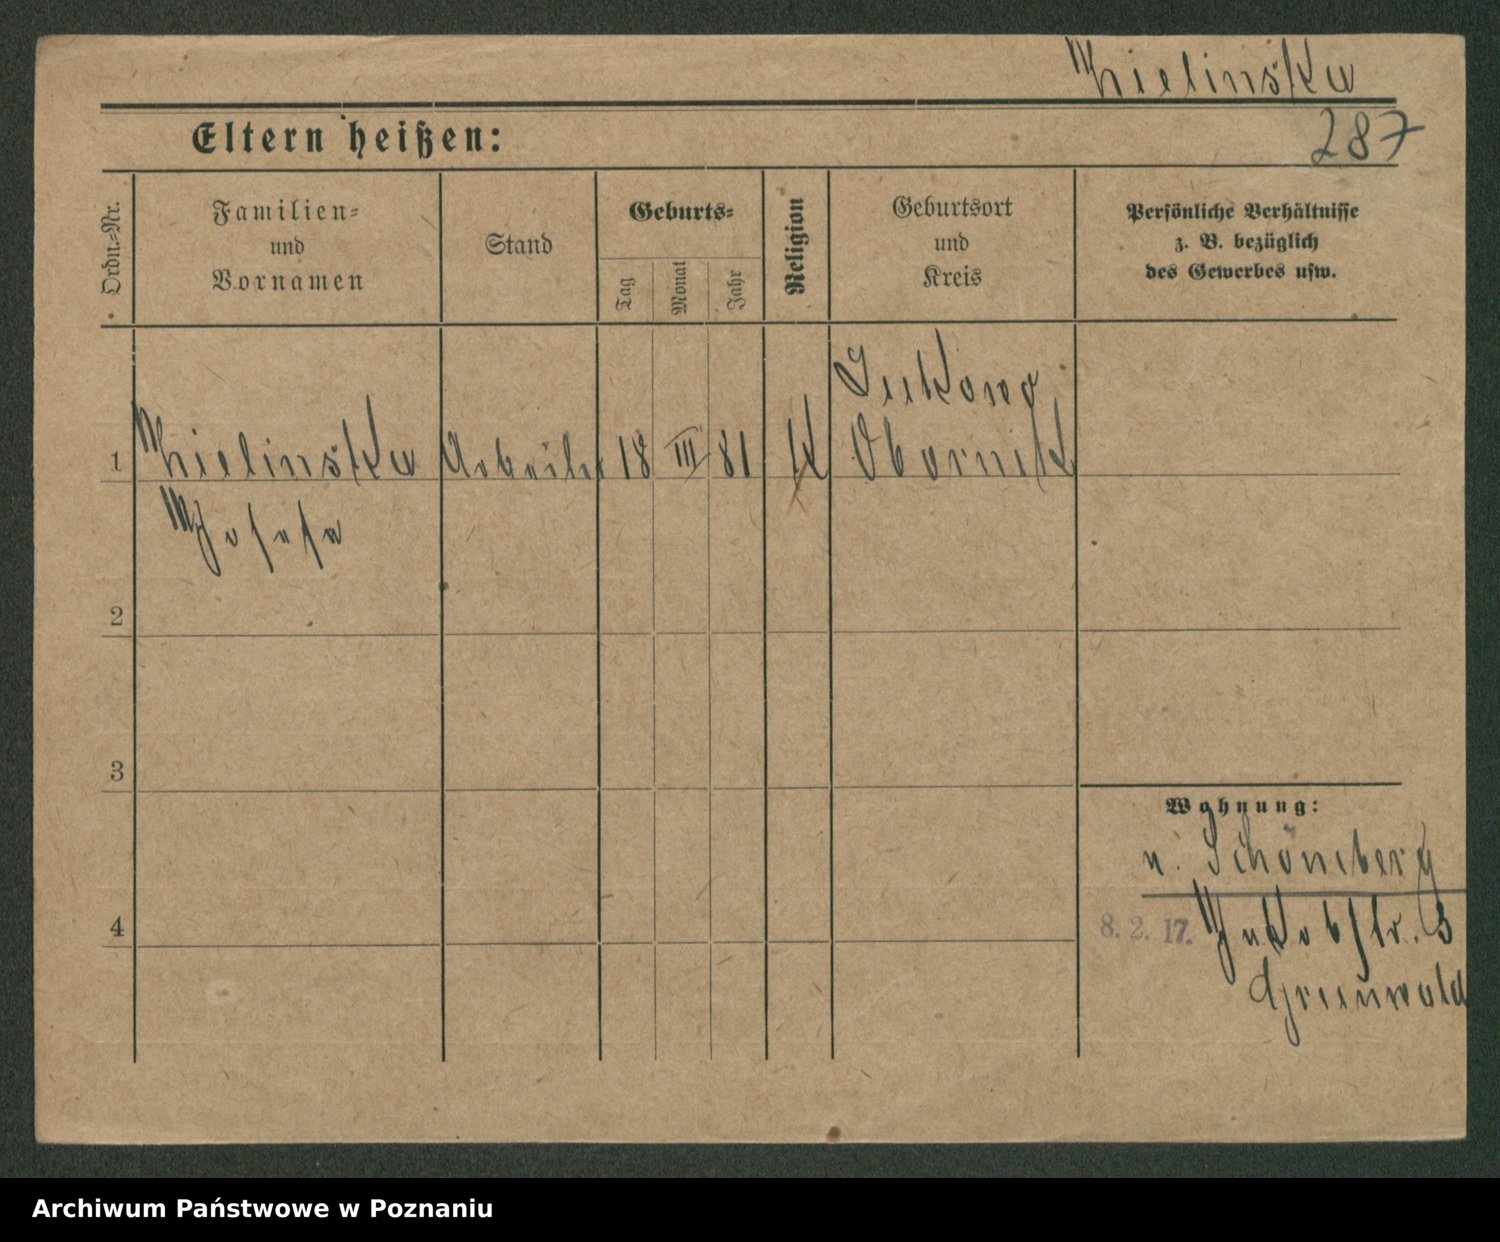 Zielinska
287
Eltern heißen:
Ordn.-Nr.
Familien-
und
Vornamen
Stand
Geburts-
Tag
Monat
Jahr
Religion
Geburtsort
und
Kreis
Persönliche Verhältnisse
z. B. bezüglich
des Gewerbes usw.
1
Zielinska
Josefa
18 III 81
K
Obornik
2
3
4
Wohnung:
n. Schöneberg
8. 2. 17.
Jakobstr. 3
Grunwald
Archiwum Państwowe w Poznaniu